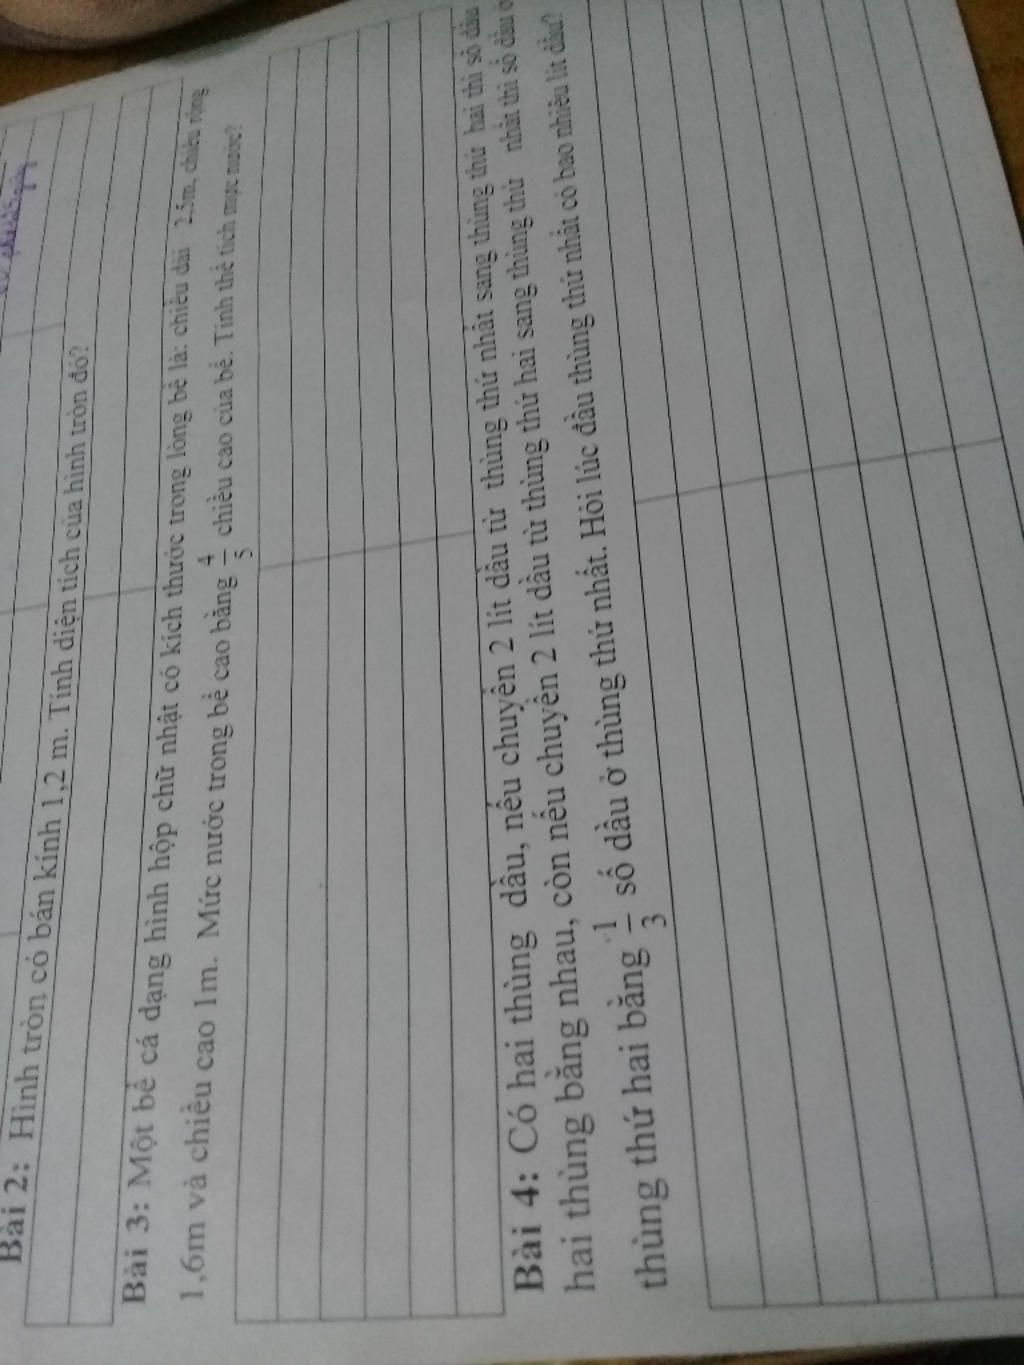 Bài 2: Hình tròn có bán kính 1,2 m. Tính diện tích của hình tròn đó?
Bài 3: Một bể cá dạng hình hộp chữ nhật có kích thước trong lòng bể là: chiều dài 2.5m, chiều rộng
1,6m và chiều cao 1m. Mức nước trong bể cao bằng 4/5 chiều cao của bể. Tính thể tích mực nước?
Bài 4: Có hai thùng dầu, nếu chuyển 2 lít dầu từ thùng thứ nhất sang thùng thứ hai thì số dầu
hai thùng bằng nhau, còn nếu chuyển 2 lít dầu từ thùng thứ hai sang thùng thứ nhất thì số dầu ở
thùng thứ hai bằng 1/3 số dầu ở thùng thứ nhất. Hỏi lúc đầu thùng thứ nhất có bao nhiêu lít dầu?